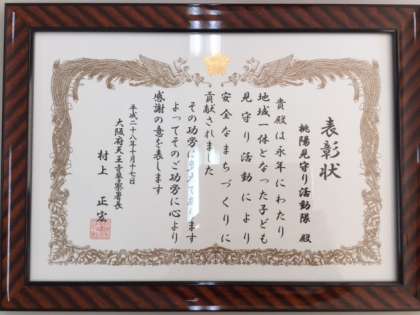 表彰状
桃陽見守り活動隊 殿
貴殿は永年にわたり
地域一体となった子ども
見守り活動により
安全なまちづくりに
貢献されました
その功労は
よってそのご功労に心より
感謝の意を表します
平成二十八年十月十七日
大阪府天王寺警察署長
村上 正宏